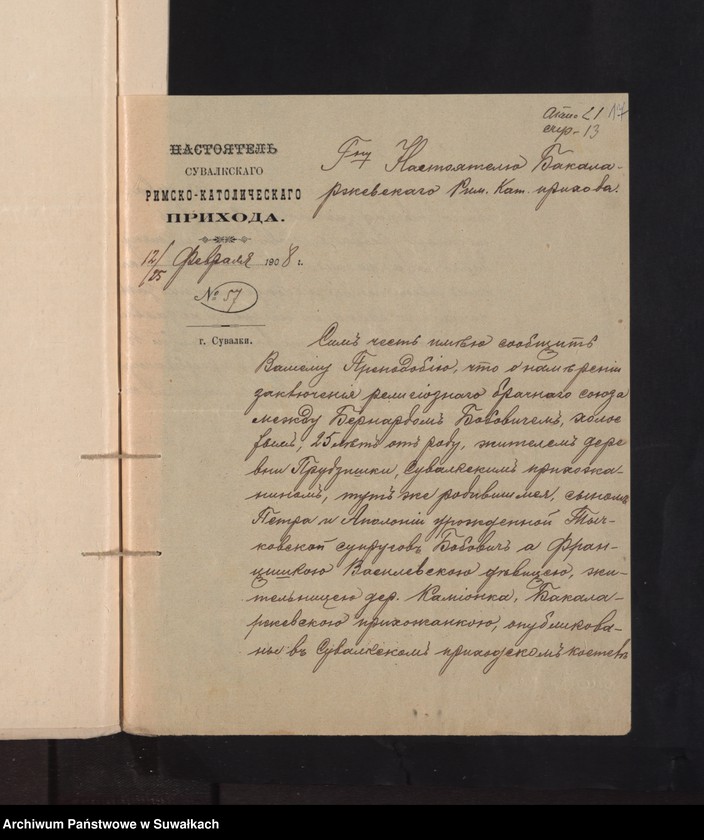 Актъ 21 17
стр. 13
НАСТОЯТЕЛЬ
СУВАЛКСКАГО
РИМСКО-КАТОЛИЧЕСКАГО
ПРИХОДА.
12/25 Февраля 1908 г.
№ 57
г. Сувалки.
Гну Настоятелю Бакала-
ржевскаго Рим. Кат. прихода.
Симъ честь имѣю сообщить
Вашему Преподобію, что о намѣреніи
заключенія религіознаго брачнаго союза
между Бернардомъ Бобовичемъ, холос
тымъ, 25 лѣтъ отъ роду, жителемъ дере
вни Прудзишки, Сувалкскимъ прихожа-
ниномъ, тутъ же родившимся, сыномъ
Петра и Аполоніи урожденной Тыч-
ковской супруговъ Бобовичъ а Фран-
цишкою Василевскою дѣвицею, жи-
тельницею дер. Каміонка, Бакала-
ржевскою прихожанкою, опубликова-
ны въ Сувалкскомъ приходскомъ костелѣ
Archiwum Państwowe w Suwałkach